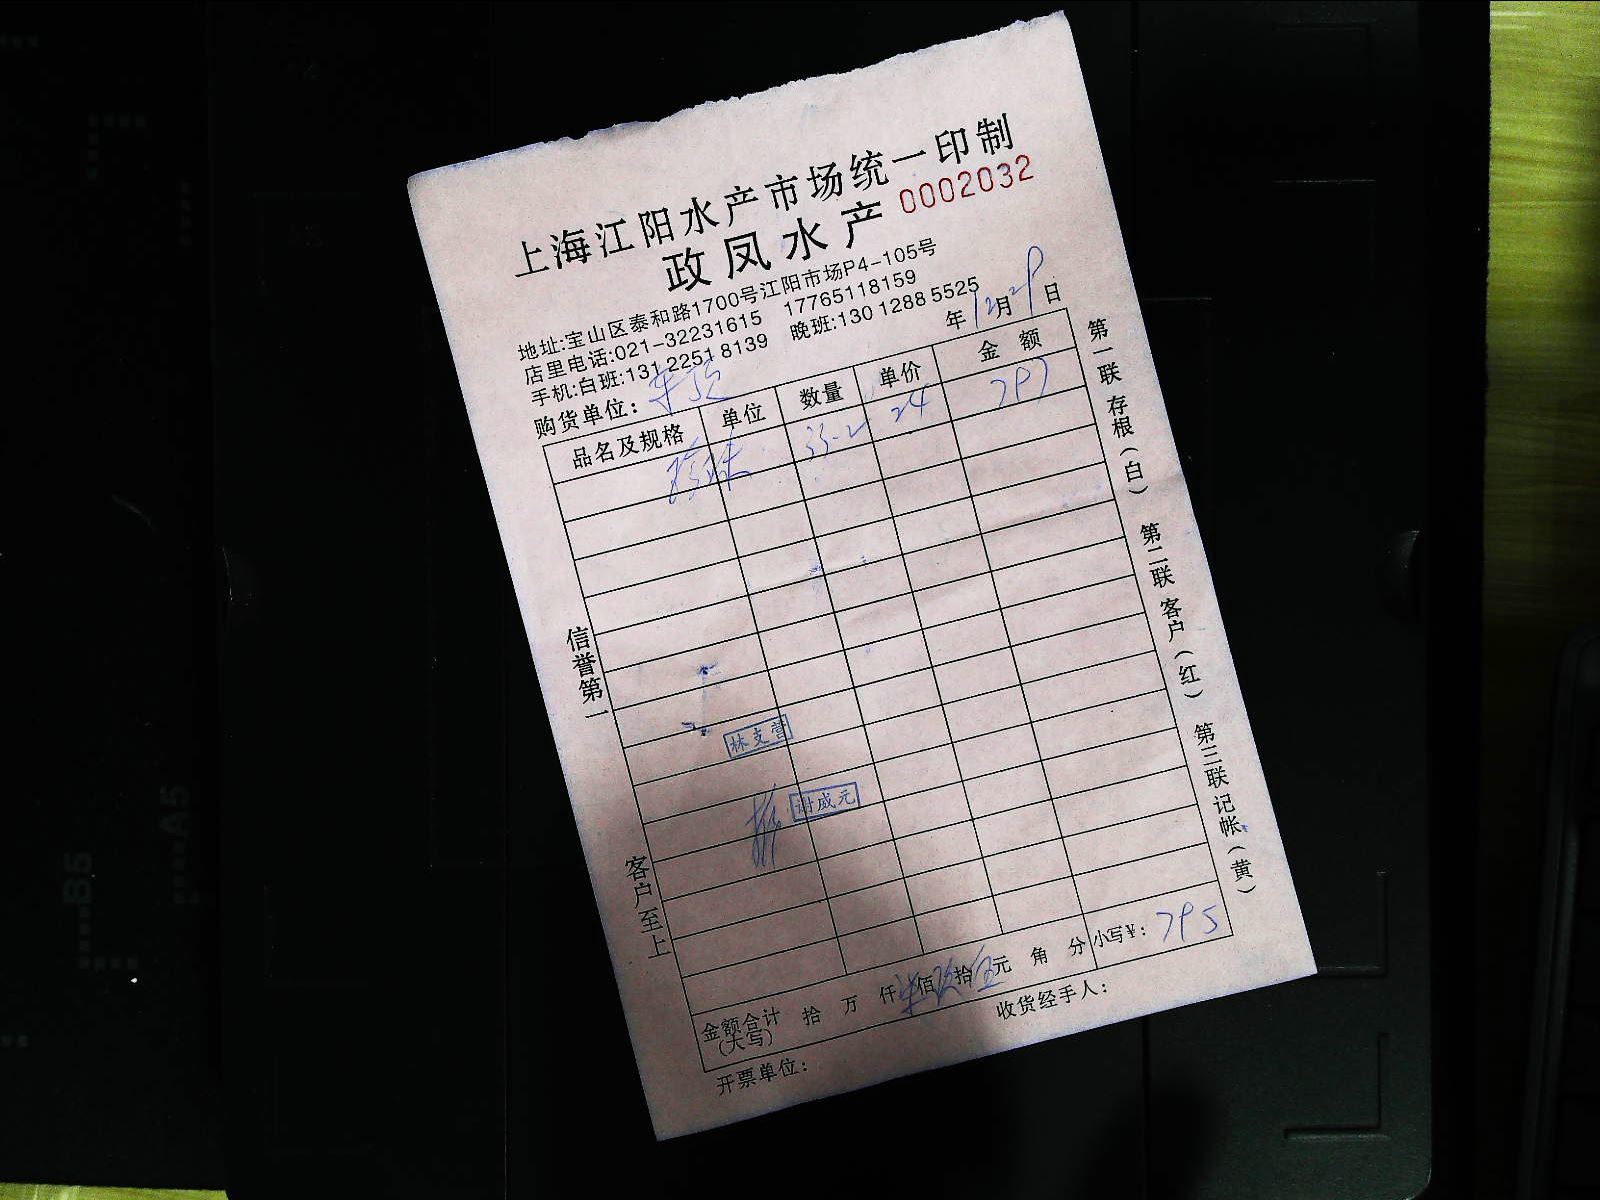 上海江阳水产市场统一印制
政凤水产 0002032
地址:宝山区泰和路1700号江阳市场P4-105号
店里电话:021-32231615 17765118159
手机:白班:131 2251 8139 晚班:130 1288 5525
购货单位: 年12月29日
品名及规格 单位 数量 单价 金额
珍珠 33-2 24 797
信誉第一
客户至上
林支营
谢威元
金额合计(大写) 拾 万 仟柒佰玖拾伍元 角 分 小写¥: 795
开票单位: 收货经手人:
第一联 存根(白) 第二联 客户(红) 第三联 记帐(黄)
B5
A5